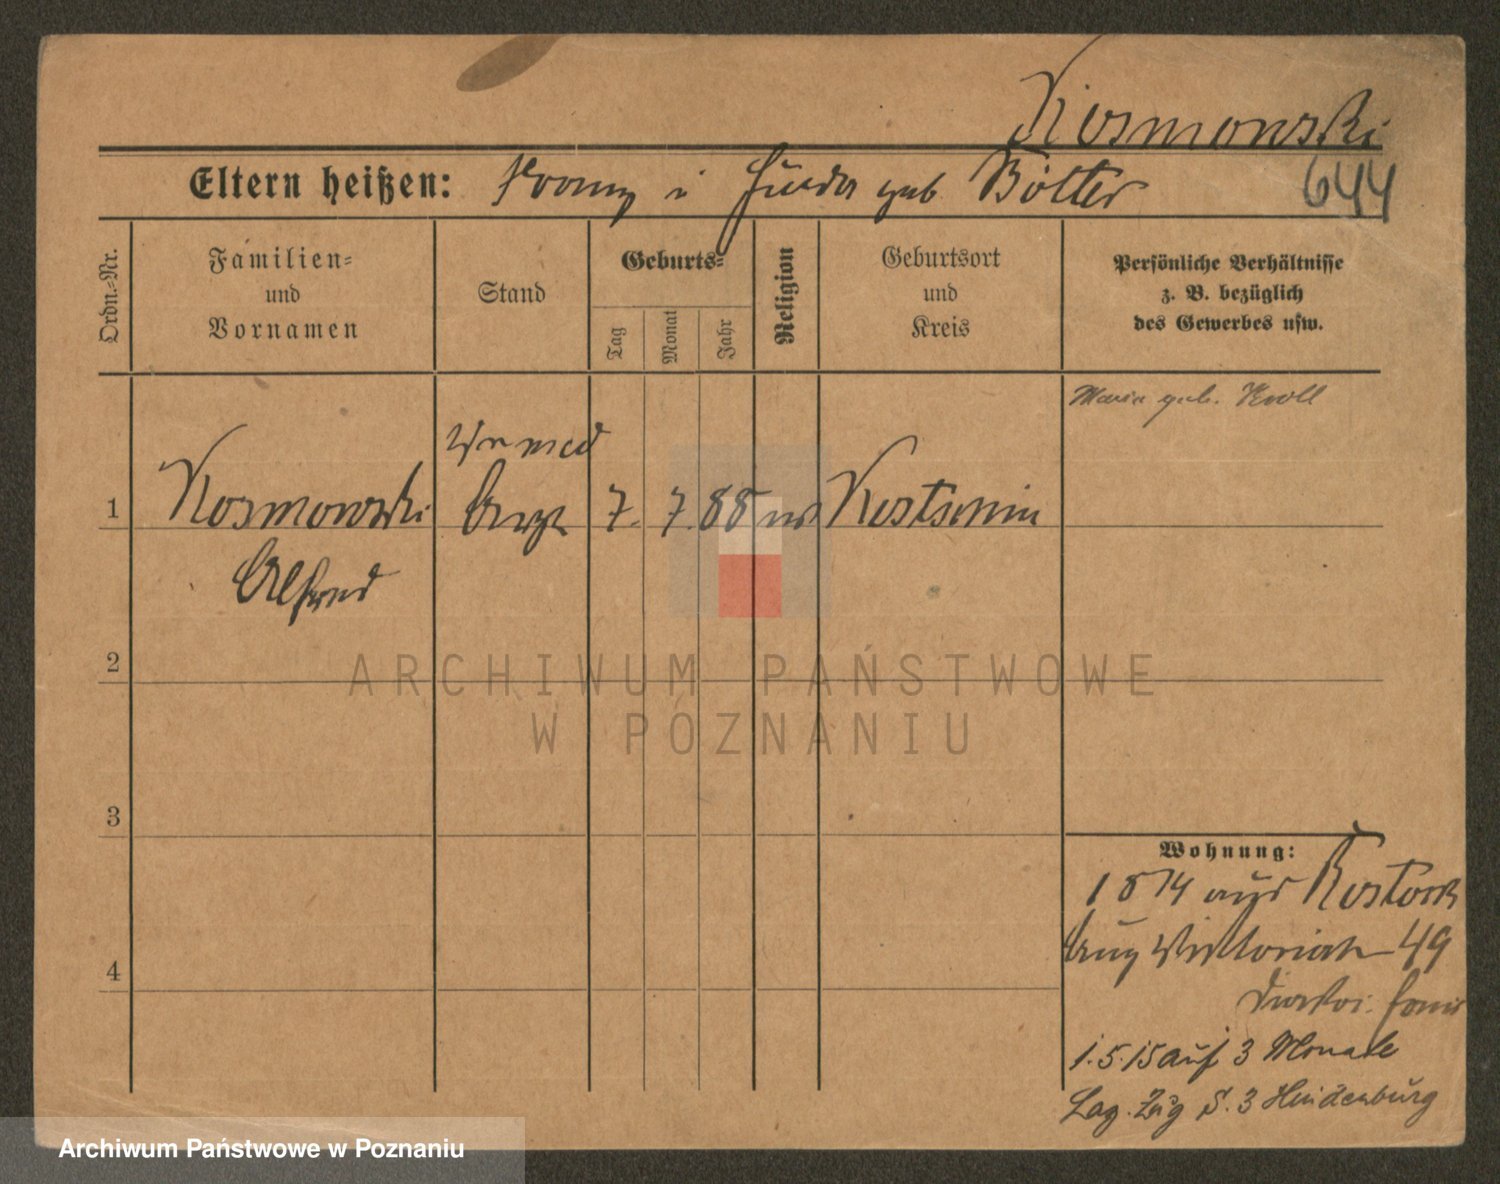 Kosmowski
Eltern heißen: Franz u geb Bölter
644
Ordn.-Nr.
Familien-
und
Vornamen
Stand
Geburts-
Tag
Monat
Jahr
Religion
Geburtsort
und
Kreis
Persönliche Verhältnisse
z. B. bezüglich
des Gewerbes usw.
Maria geb. Kroll
1
Kosmowski
Alfred
Arzt
7.
7.
88
Kostschin
2
3
4
ARCHIWUM PAŃSTWOWE
W POZNANIU
Wohnung:
1 8 14 aus Rostock
49
1.5.15 auf 3 Monate
Laz. Zug S. 3 Hindenburg
Archiwum Państwowe w Poznaniu